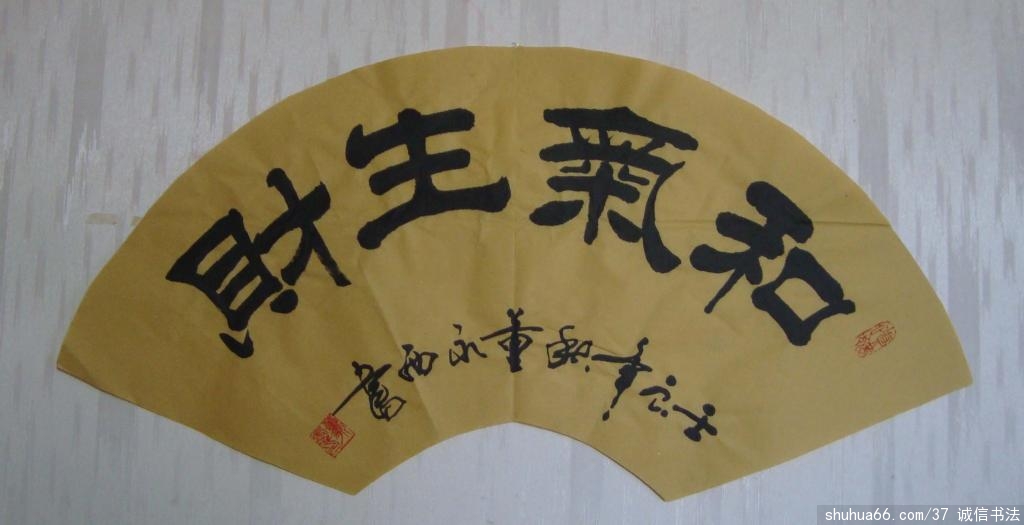 和氣生財
年秋董永西書
shuhua66.com/37 诚信书法